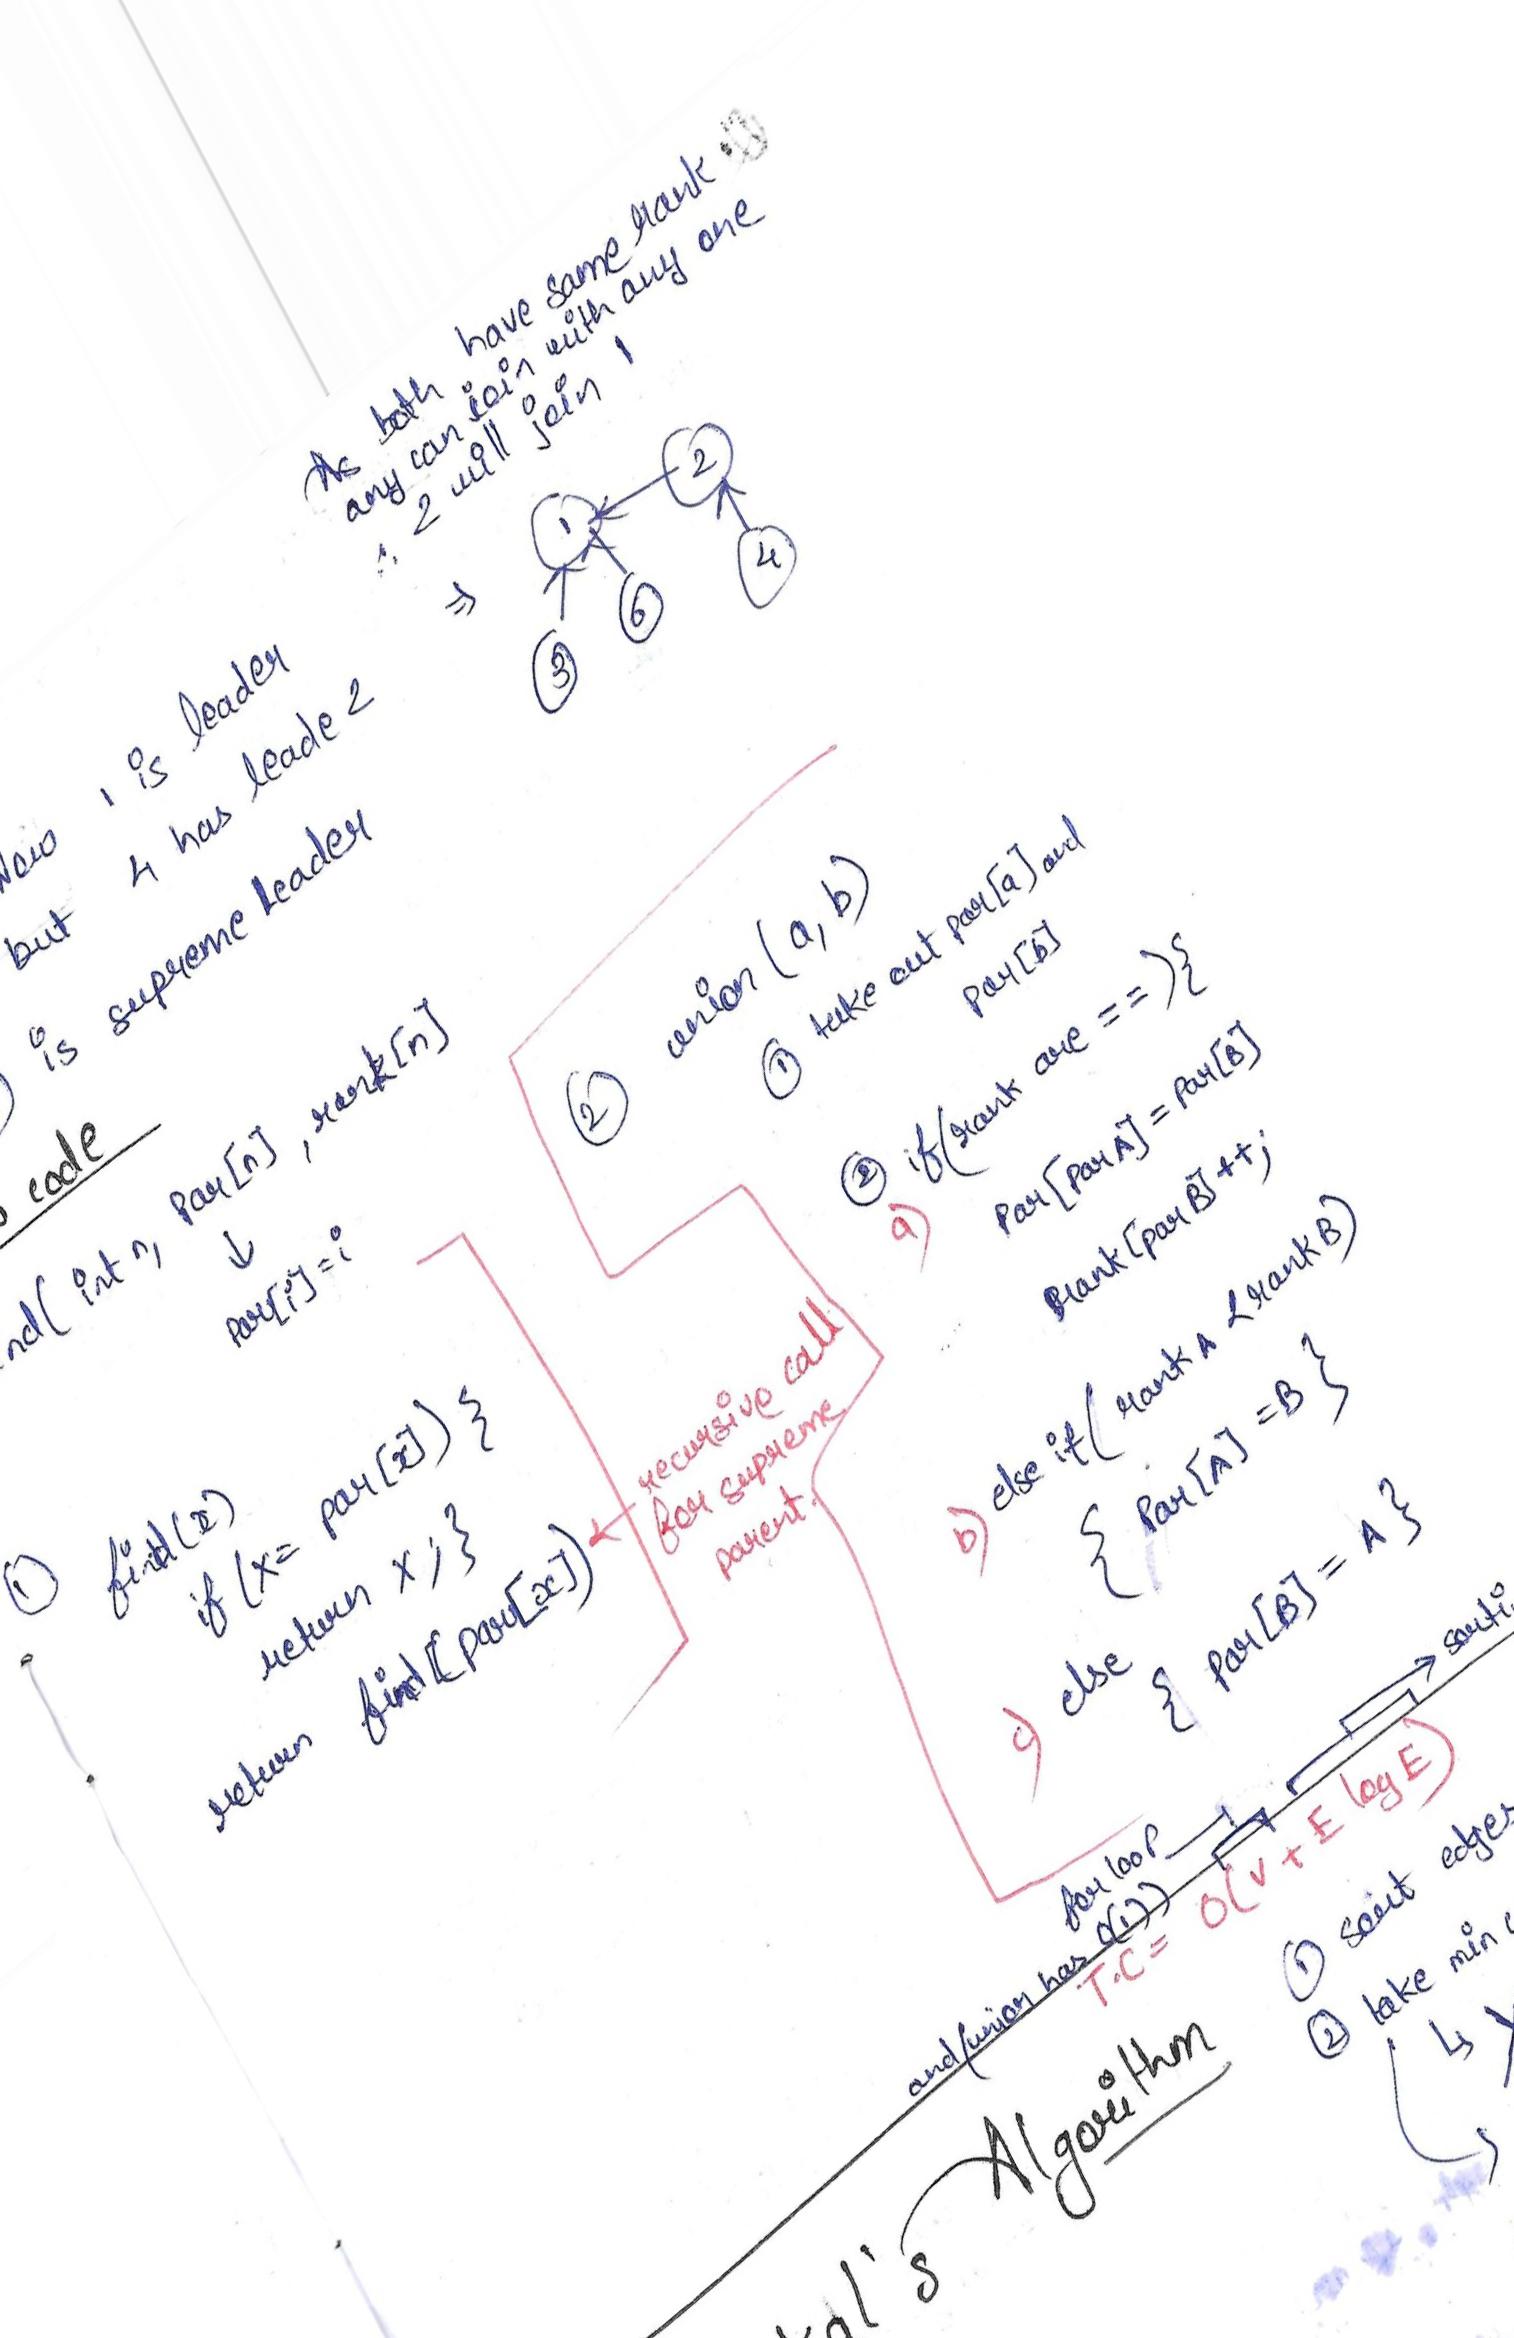 As both have same rank
any can join with any one
∴ 2 will join 1
⇒
1
2
3
6
4
Now 1 is leader
but 4 has leade 2
is supreme leader
code
int n, par[n], rank[n]
↓
par[i]=i
① find(x)
if (x= par[x]) {
return x;}
return find(par[x])
recursive call
for supreme
parent.
② union (a, b)
① take out par[a] and
par[b]
② if(rank are ==){
a) Par[ParA] = Par[B]
Rank[parB]++;
b) else if( rank A < rank B)
{ Par[A] = B }
c) else
{ Par[B] = A }
for loop
and (union has O(1))
T.C = O(V + E log E)
's Algorithm
① sort edges
② take min
↳